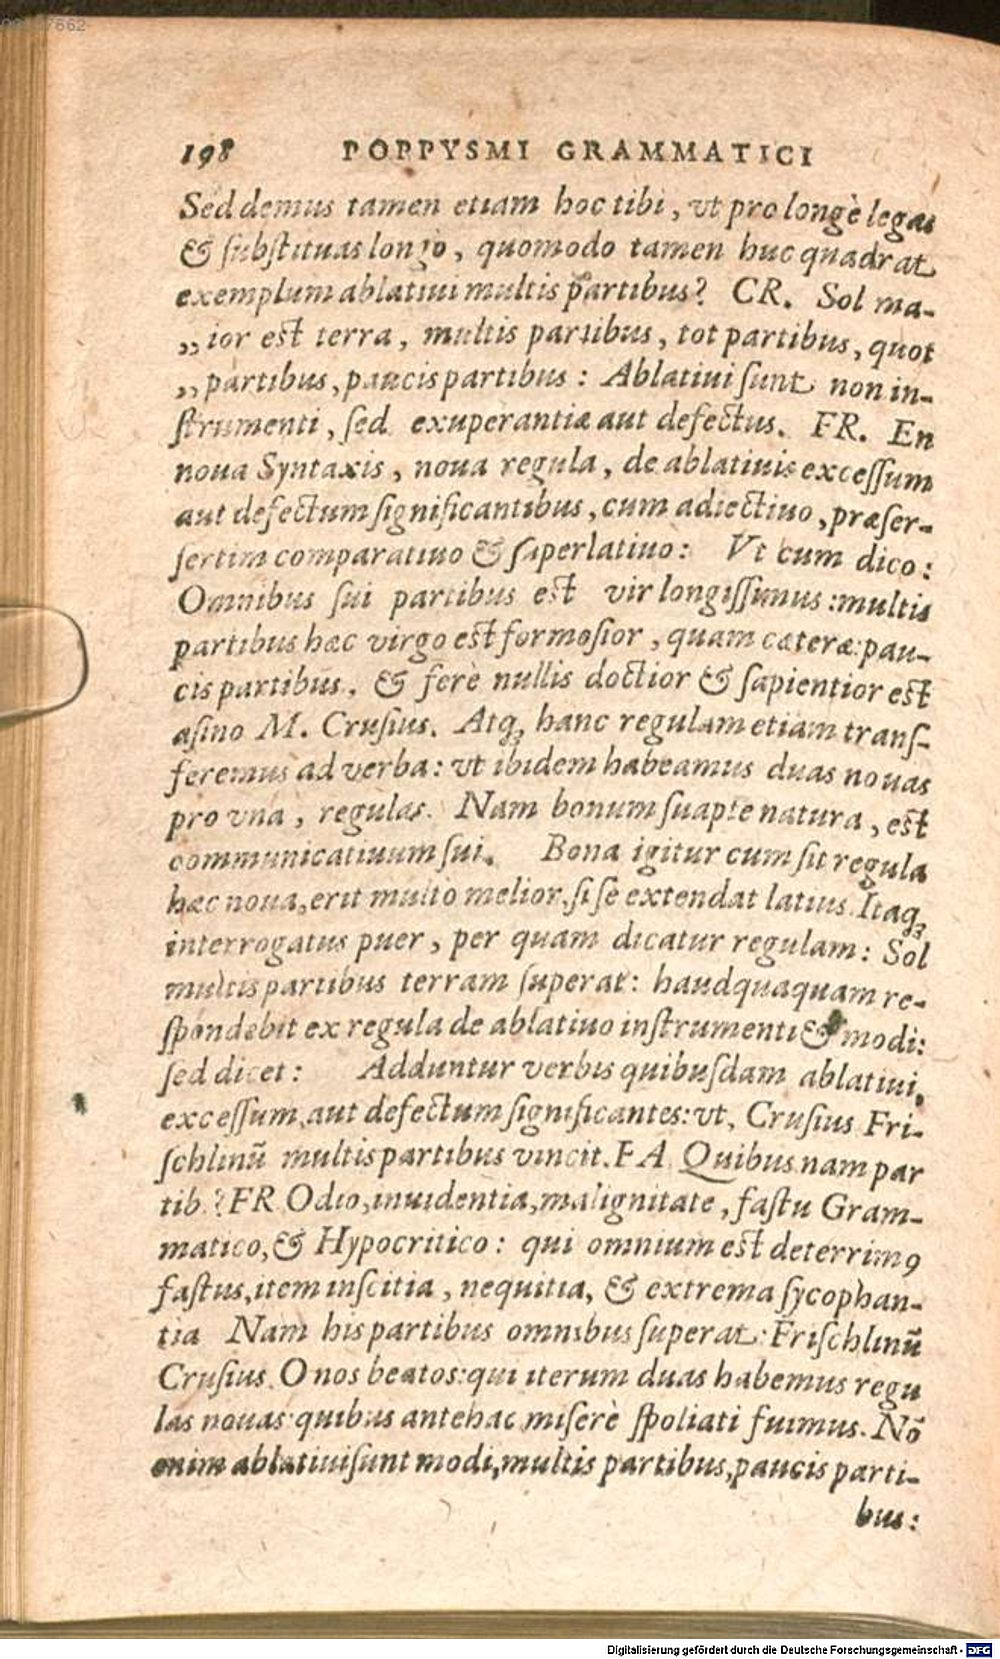 00007862
198 POPPYSMI GRAMMATICI
Sed demus tamen etiam hoc tibi, vt pro longè legas
& ſubſtituas longo, quomodo tamen huc quadrat
exemplum ablatiui multis partibus? CR. Sol ma-
„ ior est terra, multis partibus, tot partibus, quot
„ partibus, paucis partibus: Ablatiui ſunt non in-
ſtrumenti, ſed exuperantiæ aut defectus. FR. En
noua Syntaxis, noua regula, de ablatiuis exceſſum
aut defectum ſignificantibus, cum adiectiuo, præſer-
ſertim comparatiuo & ſuperlatiuo: Vt cum dico:
Omnibus ſui partibus est vir longiſſimus: multis
partibus hæc virgo est formoſior, quam cæteræ: pau-
cis partibus, & ferè nullis doctior & ſapientior est
aſino M. Cruſius. Atq́; hanc regulam etiam tranſ-
feremus ad verba: vt ibidem habeamus duas nouas
pro vna, regulas. Nam bonum ſuapte natura, est
communicatiuum ſui. Bona igitur cum ſit regula
hæc noua, erit multo melior, ſi ſe extendat latius. Itaq;
interrogatus puer, per quam dicatur regulam: Sol
multis partibus terram ſuperat: haudquaquam re-
ſpondebit ex regula de ablatiuo inſtrumenti & modi:
ſed dicet: Adduntur verbis quibuſdam ablatiui,
exceſſum, aut defectum ſignificantes: vt, Cruſius Fri-
ſchlinū multis partibus vincit. FA Quibus nam par
tib.? FR Odio, inuidentia, malignitate, faſtu Gram-
matico, & Hypocritico: qui omnium est deterrimꝰ
faſtus, item inſcitia, nequitia, & extrema ſycophan-
tia Nam his partibus omnibus ſuperat: Friſchlinū
Cruſius. O nos beatos: qui iterum duas habemus regu
las nouas: quibus antehac miſerè ſpoliati fuimus. Nō
enim ablatiui ſunt modi, multis partibus, paucis parti-
bus:
Digitalisierung gefördert durch die Deutsche Forschungsgemeinschaft - DFG